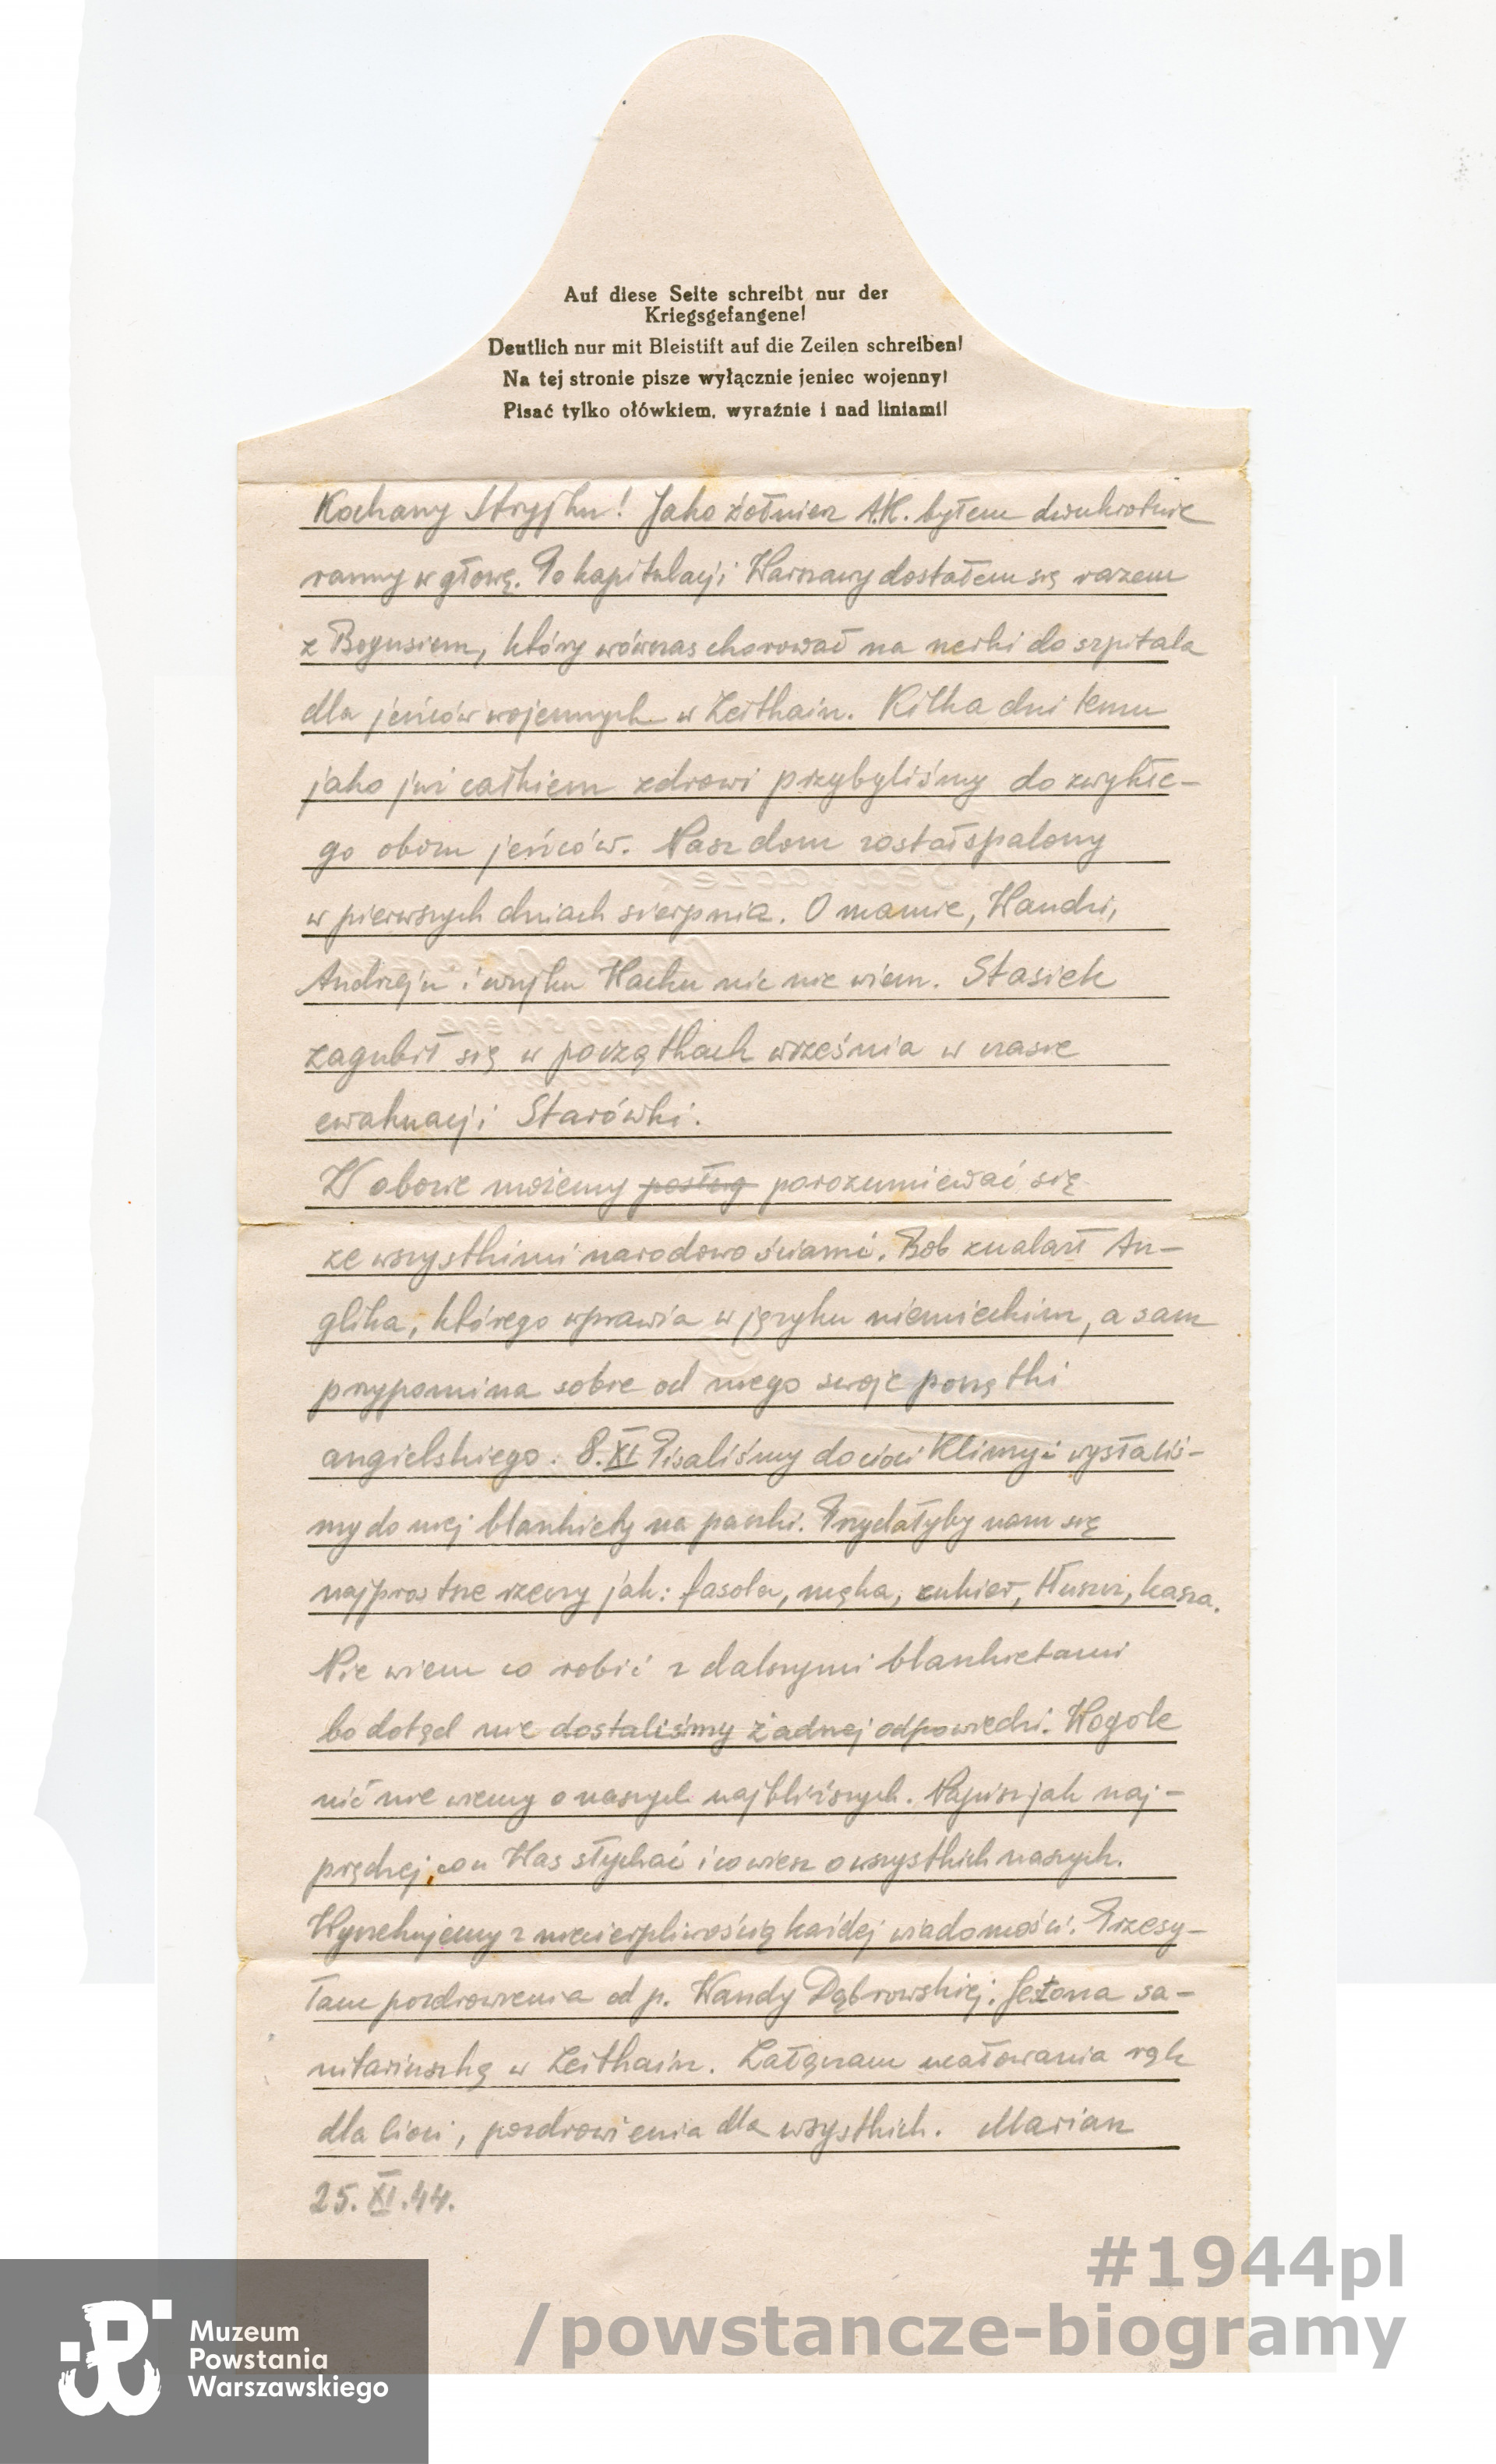 Auf diese Seite schreibt nur der
Kriegsgefangene!
Deutlich nur mit Bleistift auf die Zeilen schreiben!
Na tej stronie pisze wyłącznie jeniec wojenny!
Pisać tylko ołówkiem, wyraźnie i nad liniami!
Kochany Stryjku! Jako żołnierz A.K. byłem dwukrotnie
ranny w głowę. Po kapitulacji Warszawy dostałem się razem
z Bogusiem, który wówczas chorował na nerki do szpitala
dla jeńców wojennych w Zeithain. Kilka dni temu
jako już całkiem zdrowi przybyliśmy do zwykłe-
go obozu jeńców. Nasz dom został spalony
w pierwszych dniach sierpnia. O mamie, Wandzi,
Andrzeju i wujku Wacku nic nie wiem. Stasiek
zagubił się w początkach września w czasie
ewakuacji Starówki.
W obozie możemy porozumiewać się
ze wszystkimi narodowościami. Bob znalazł An-
glika, którego wprawia w języku niemieckim, a sam
przypomina sobie od niego swoje początki
angielskiego. 8.XI Pisaliśmy do cioci Klimy i wysłaliś-
my do niej blankiety na paczki. Przydałyby nam się
najprostsze rzeczy jak: fasola, mąka, cukier, tłuszcz, kasza.
Nie wiem co robić z dalszymi blankietami
bo dotąd nie dostaliśmy żadnej odpowiedzi. Wogóle
nic nie wiemy o naszych najbliższych. Napisz jak naj-
prędzej co u Was słychać i co wiesz o wszystkich naszych.
Wyczekujemy z niecierpliwością każdej wiadomości. Przesy-
łam pozdrowienia od p. Wandy Dąbrowskiej. Jest ona sa-
nitariuszką w Zeithain. Załączam ucałowania rąk
dla cioci, pozdrowienia dla wszystkich. Marian
25.XI.44.
#1944pl
/powstancze-biogramy
Muzeum
Powstania
Warszawskiego